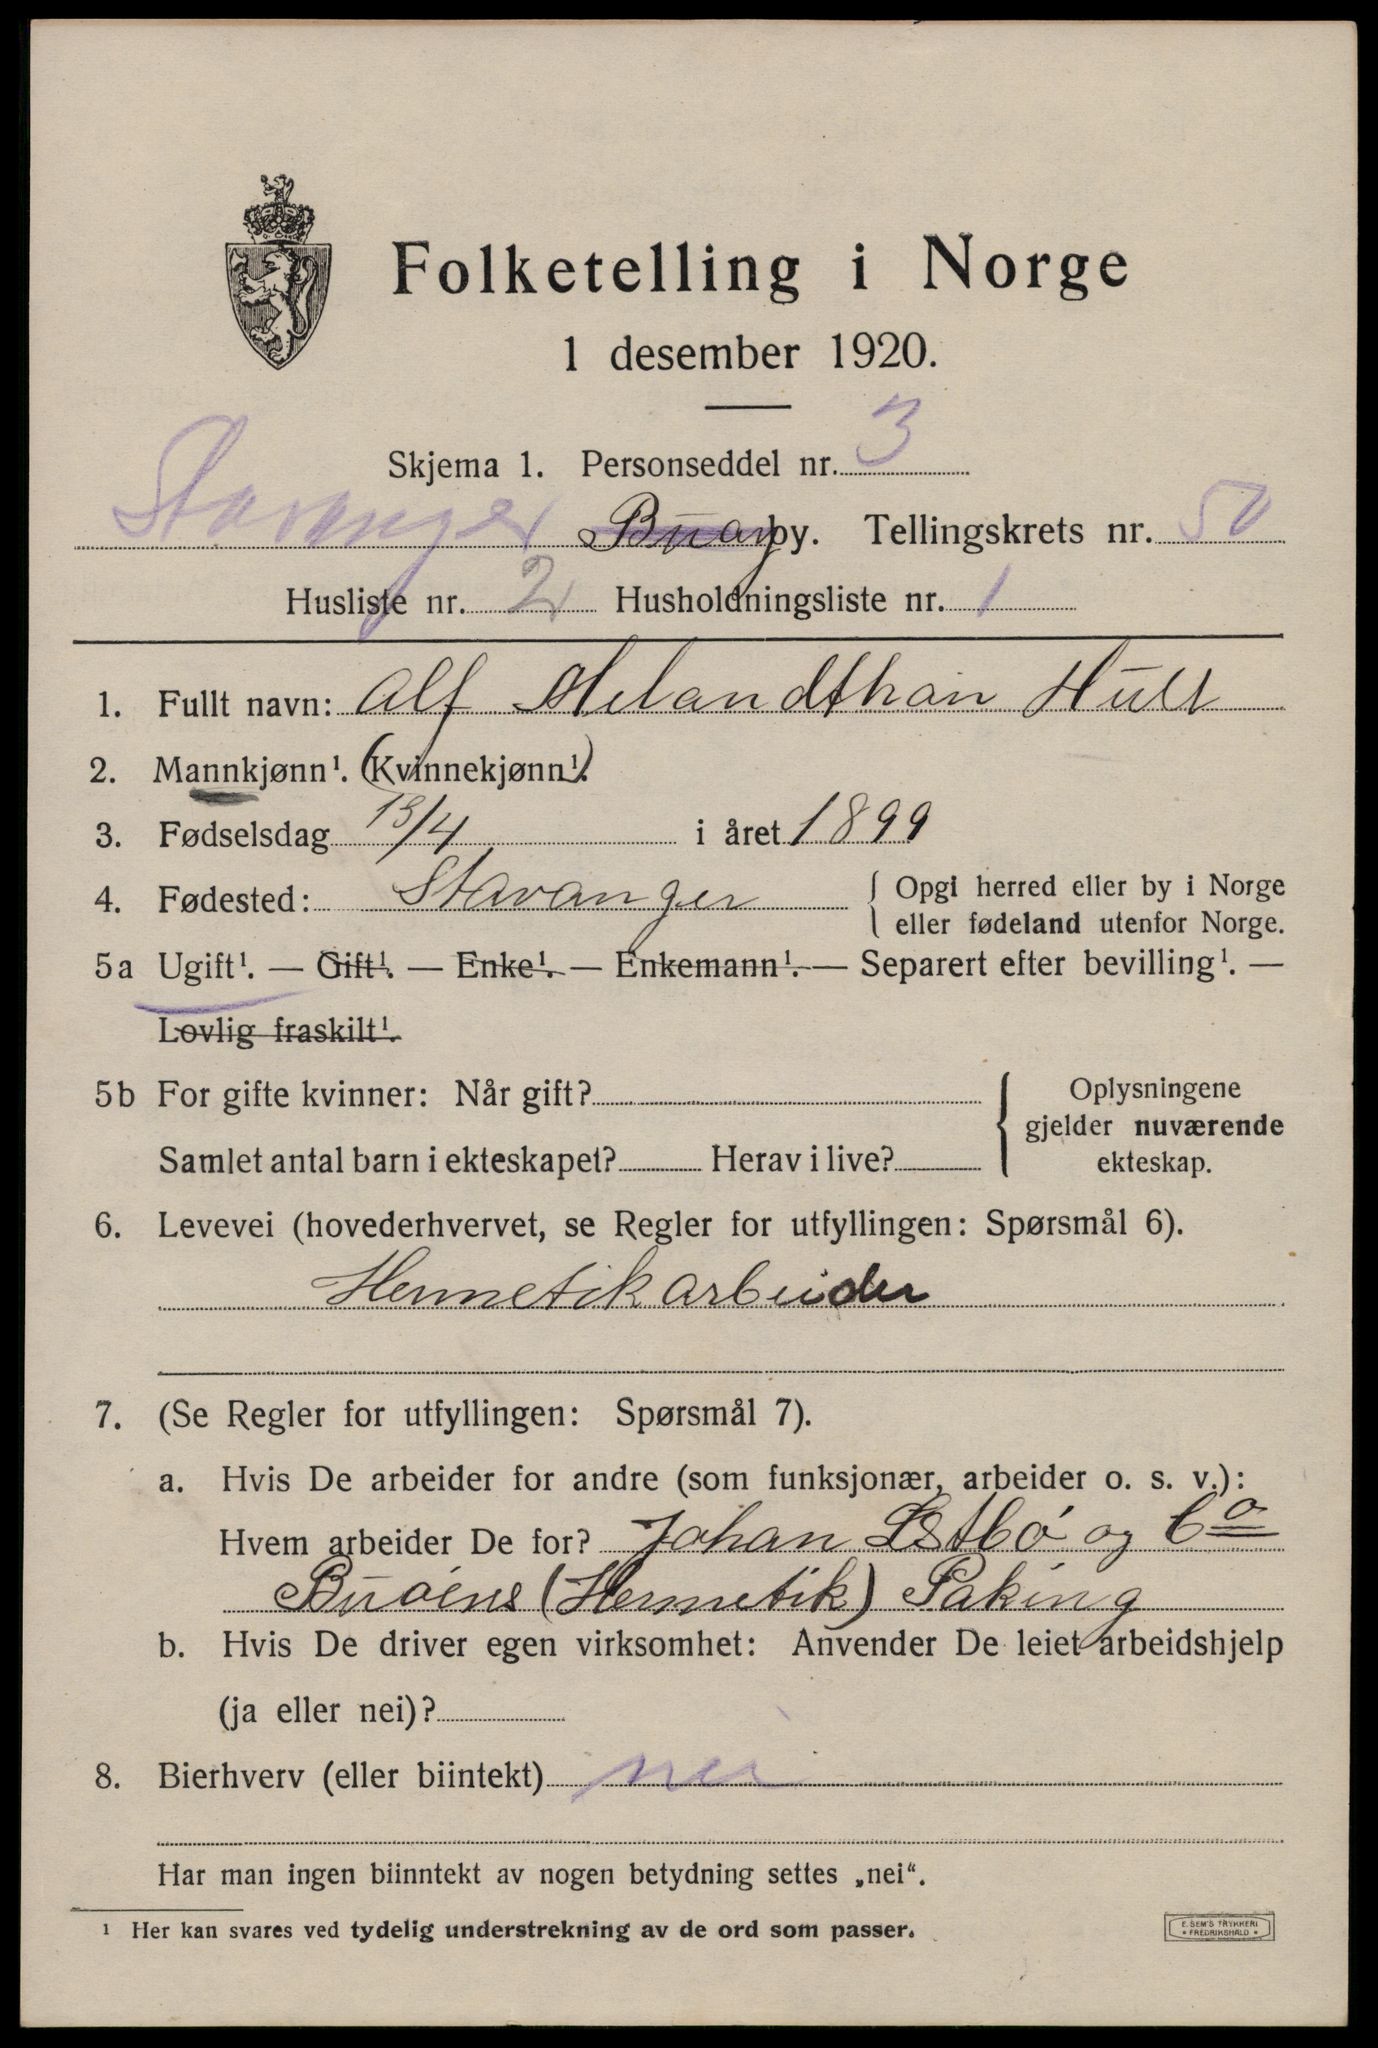 Folketelling i Norge
1 desember 1920.
Skjema 1. Personseddel nr. 3
Stavanger by. Tellingskrets nr. 50
Husliste nr. 2 Husholdningsliste nr. 1
1. Fullt navn: Alf Melandthon
2. Mannkjønn¹. (Kvinnekjønn¹.)
3. Fødselsdag 13/4 i året 1899
4. Fødested: Stavanger { Opgi herred eller by i Norge
eller fødeland utenfor Norge.
5a Ugift¹. — Gift¹. — Enke¹. — Enkemann¹. — Separert efter bevilling¹. —
Lovlig fraskilt¹.
5b For gifte kvinner: Når gift? { Oplysningene
gjelder nuværende
Samlet antal barn i ekteskapet? Herav i live? ekteskap.
6. Levevei (hovederhvervet, se Regler for utfyllingen: Spørsmål 6).
Hermetikarbeider
7. (Se Regler for utfyllingen: Spørsmål 7).
a. Hvis De arbeider for andre (som funksjonær, arbeider o. s. v.):
Hvem arbeider De for? Johan og Co
Buöens (Hermetik) Paking
b. Hvis De driver egen virksomhet: Anvender De leiet arbeidshjelp
(ja eller nei)?
8. Bierhverv (eller biintekt) nei
Har man ingen biinntekt av nogen betydning settes „nei“.
¹ Her kan svares ved tydelig understrekning av de ord som passer.
E. SEM'S TRYKKERI
• FREDRIKSHALD •